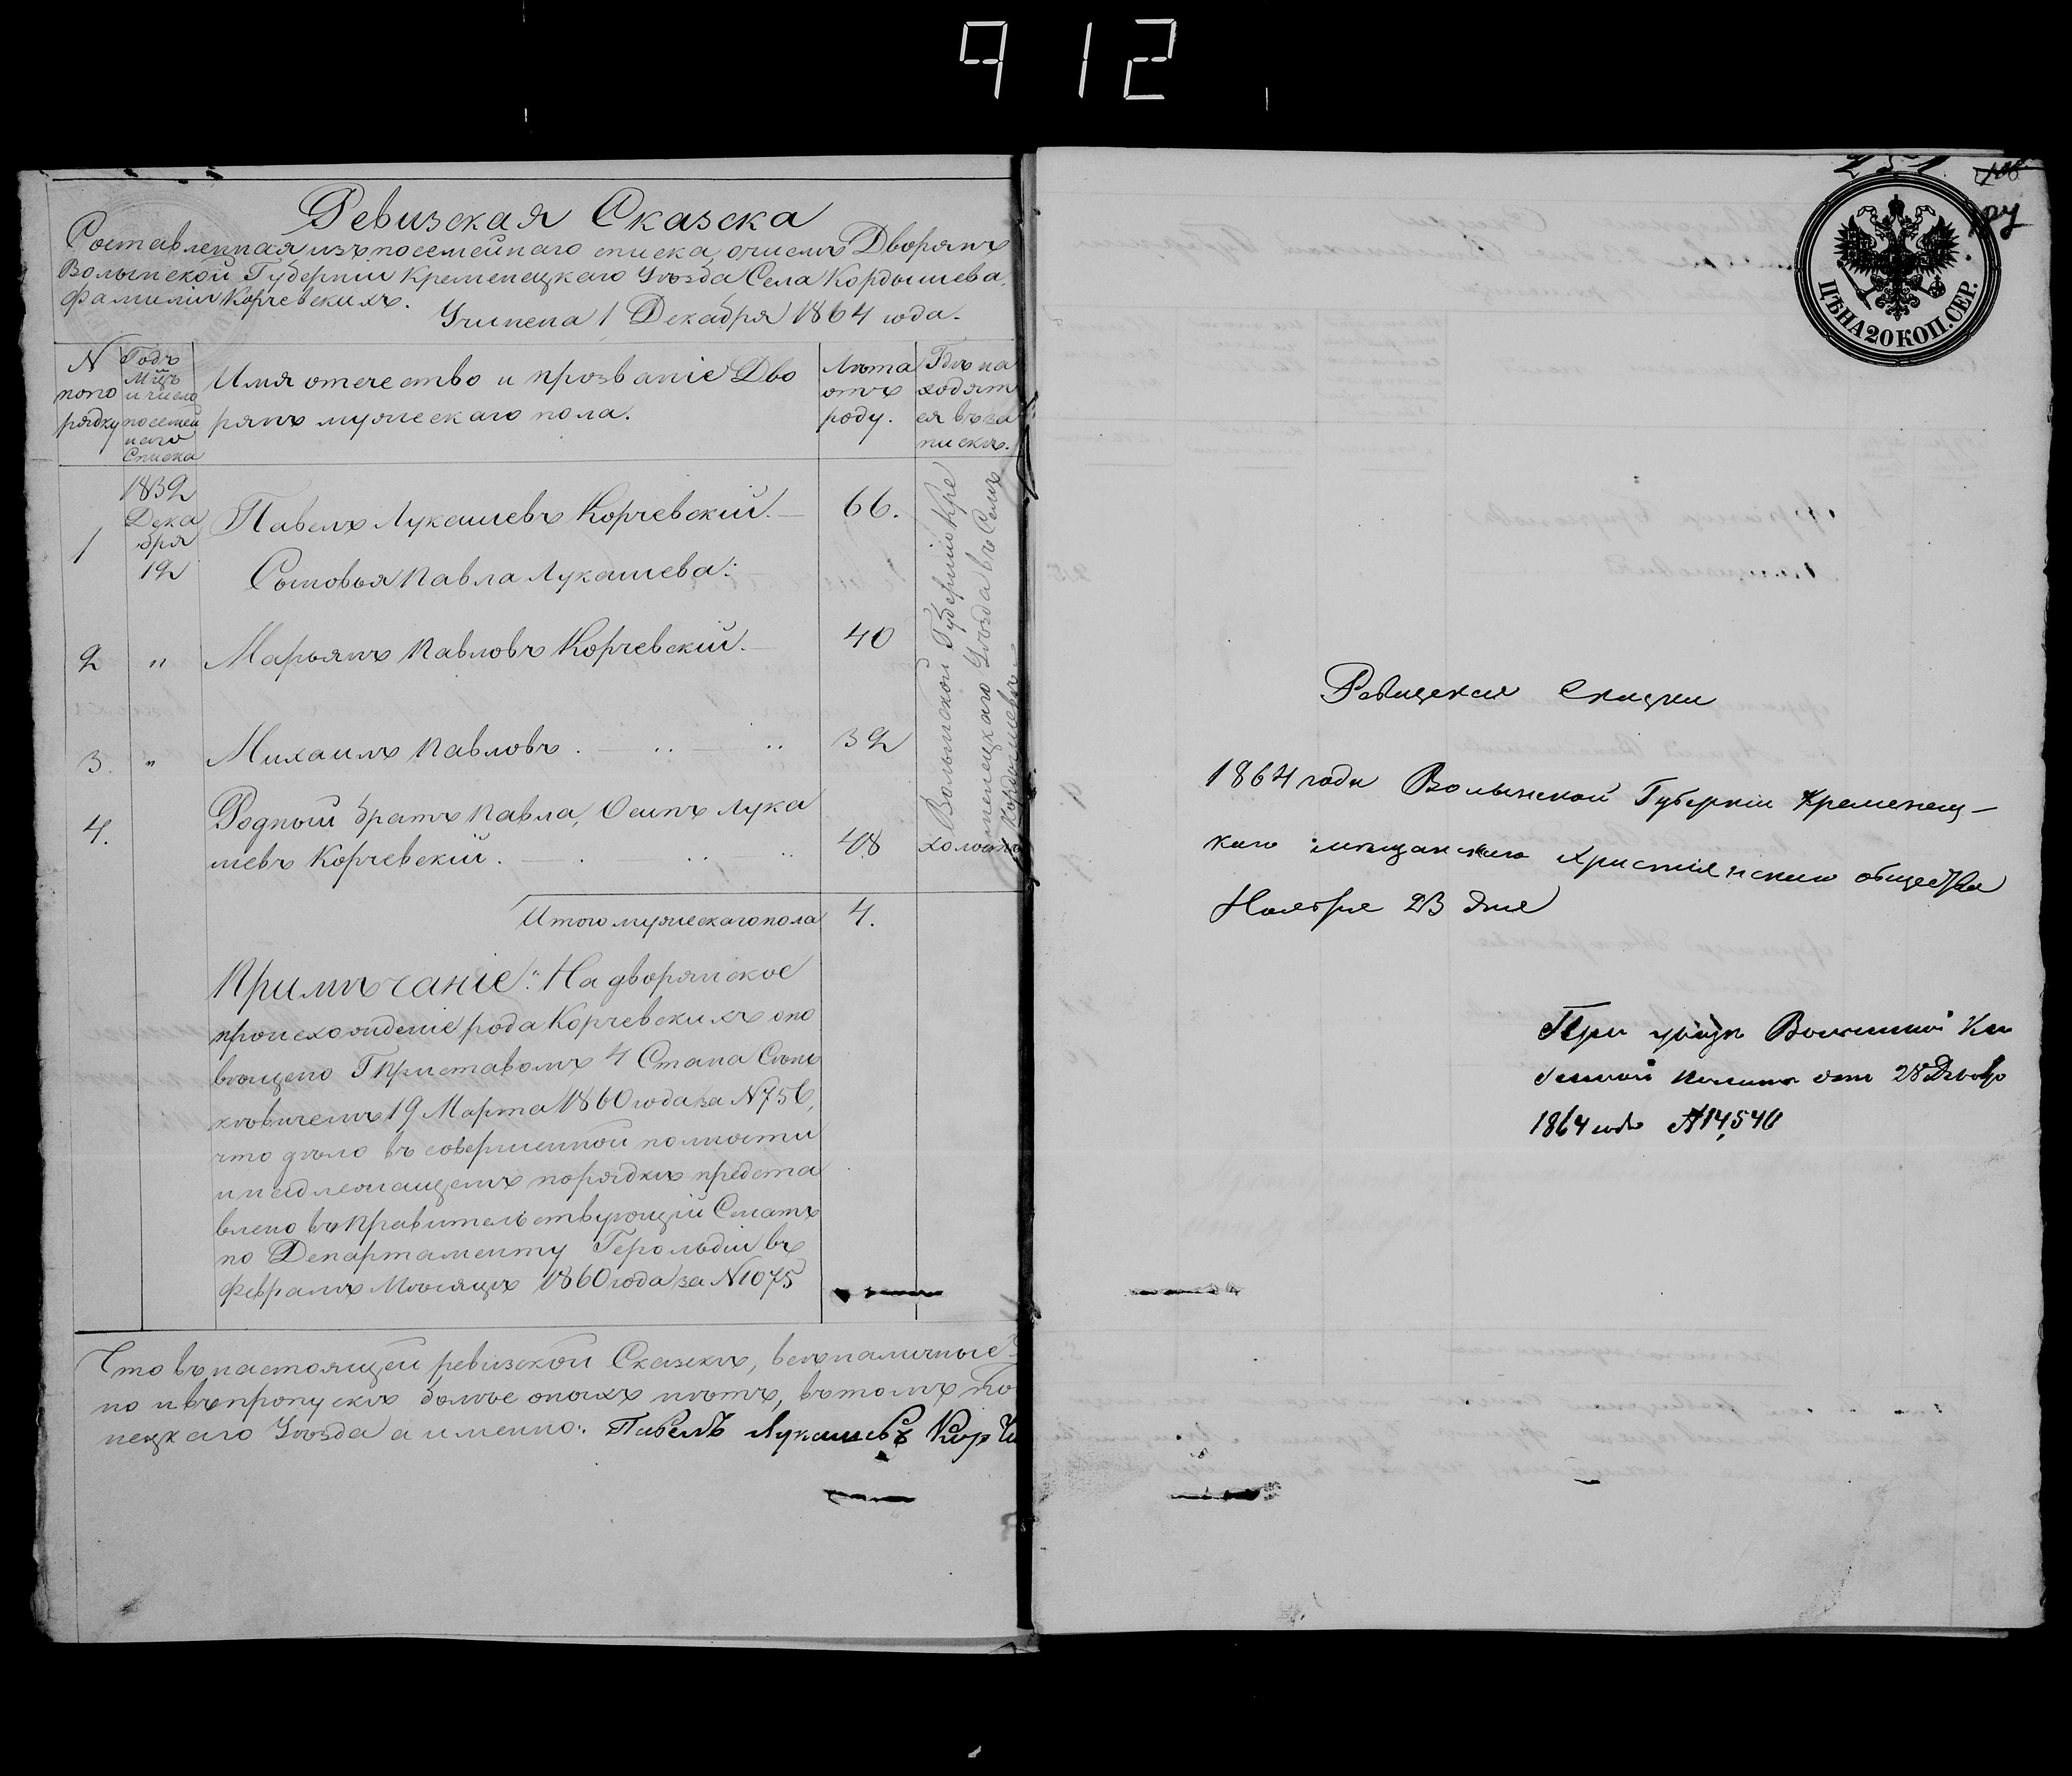 912
Ревизская Сказска
Составленная изъ посемейнаго списка, о числѣ Дворянъ
Волынской Губерніи Кременецкаго Уѣзда Села Кордышева,
фамиліи Корчевскихъ.
Учинена 1 Декабря 1864 года.
N по по рядку
Годъ М-цъ и число посемей наго Списка
Имя отечество и прозваніе Дво
рянъ мужескаго пола.
Лѣта отъ роду.
Гдѣ на ходят ся въ за пискѣ.
1
1839 Дека бря 19
Павелъ Лукашевъ Корчевскій.
66.
Сыновья Павла Лукашева:
2 " Марьянъ Павловъ Корчевскій. 40
3. " Михаилъ Павловъ. 39
4. Родный братъ Павла, Осипъ Лука
шевъ Корчевскій. 48 холостъ
Волынской Губерніи Кре
менецкаго Уѣзда въ Селѣ
Кордышевѣ
Итого мужескаго пола 4.
Примѣчаніе: На дворянское
происхожденіе рода Корчевскихъ опо
вѣщено Г Приставомъ 4 Стана
19 Марта 1860 года за N 756,
что дѣло въ совершенной полности
и надлежащемъ порядкѣ предста
влено въ Правительствующій Сенатъ
по Департаменту Герольдіи въ
Февралѣ Мѣсяцѣ 1860 года за N 1075
Что въ настоящей ревизской Сказскѣ, всѣ наличные
но и въ пропускѣ болѣе оныхъ нѣтъ, въ томъ
нецкаго Уѣзда а именно: Павелъ Лукашевъ
251
ЦѢНА 20 КОП. СЕР.
Ревизская Сказка
1864 года Волынской Губерніи Кременец-
каго мѣщанскаго Христіянскаго общества
Ноября 23 дня
При указѣ Волынской Ка
зенной Палаты отъ 28
1864 года N 14,540